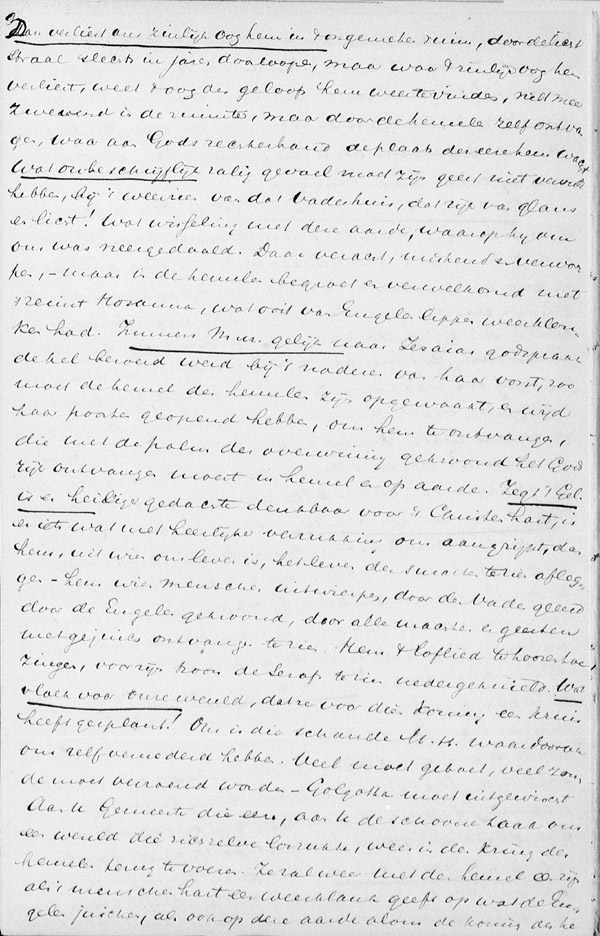 Dan verliest ons zinlijk oog hem in 't ongemeten ruim, door de licht
straal slechts in zijn doorloopen, maar waar 't zinlijk oog hem
verliest, weet 't oog des geloofs hem weer te vinden, niet meer
zwevend in de ruimte, maar door de hemelen zelf ontvan
gen, waar aan Gods rechterhand de plaats der eere hem wacht
Wat onbeschrijflijk zalig gevoel moet zijn geest niet vervuld
hebben, bij 't weerzien van dat Vaderhuis, dat rijk van glans
en licht! Wat wisseling met deze aarde, waarop hij om
ons was neergedaald. Daar veracht, miskend en verwor
pen, – maar in de hemelen begroet en verwelkomd met
't reinst Hosanna, wat ooit van Engelen lippen weerklon
ken had. Immers M. gelijk naar Jesaias godspraak
de hel beroerd werd bij 't naderen van haar vorst, zoo
moet de hemel der hemelen zijn opgewaakt, en wijd
haar poorten geopend hebben, om hem te ontvangen,
die met de palm der overwinning gekroond het Gods
rijk ontvangen moest in hemel en op aarde. Zegt 't Gel.
is er heiliger gedachte denkbaar voor 't Christenhart, is
er iets wat met heerlijker verrukking ons aangrijpt, dan
hem, uit wien ons leven is, het leven der smarten te zien afleg
gen – hem wien menschen uitwierpen, door den Vader geëerd
door de Engelen gekroond, door alle machten en geesten
met gejuich ontvangen te zien. Hem 't loflied te hooren toe
zingen, voor zijn troon de Seraf te zien nedergeknield. Wat
vloek voor onze wereld, dat ze voor dien Koning een kruis
heeft geplant! Ons is die schande M. H. waardoor we
ons zelf vernederd hebben. Veel moet geboet, veel zon
de moet verzoend worden – Golgotha moet uitgewischt
Aan U Gemeente die eer, aan U de schoone taak om
een wereld die zich zelve losrukte, weer in den kring der
hemelen terug te voeren. Ze zal weer met den hemel een zijn
als 't menschenhart een weerklank geeft op wat de En
gelen juichen, als ook op deze aarde alom de koning der he